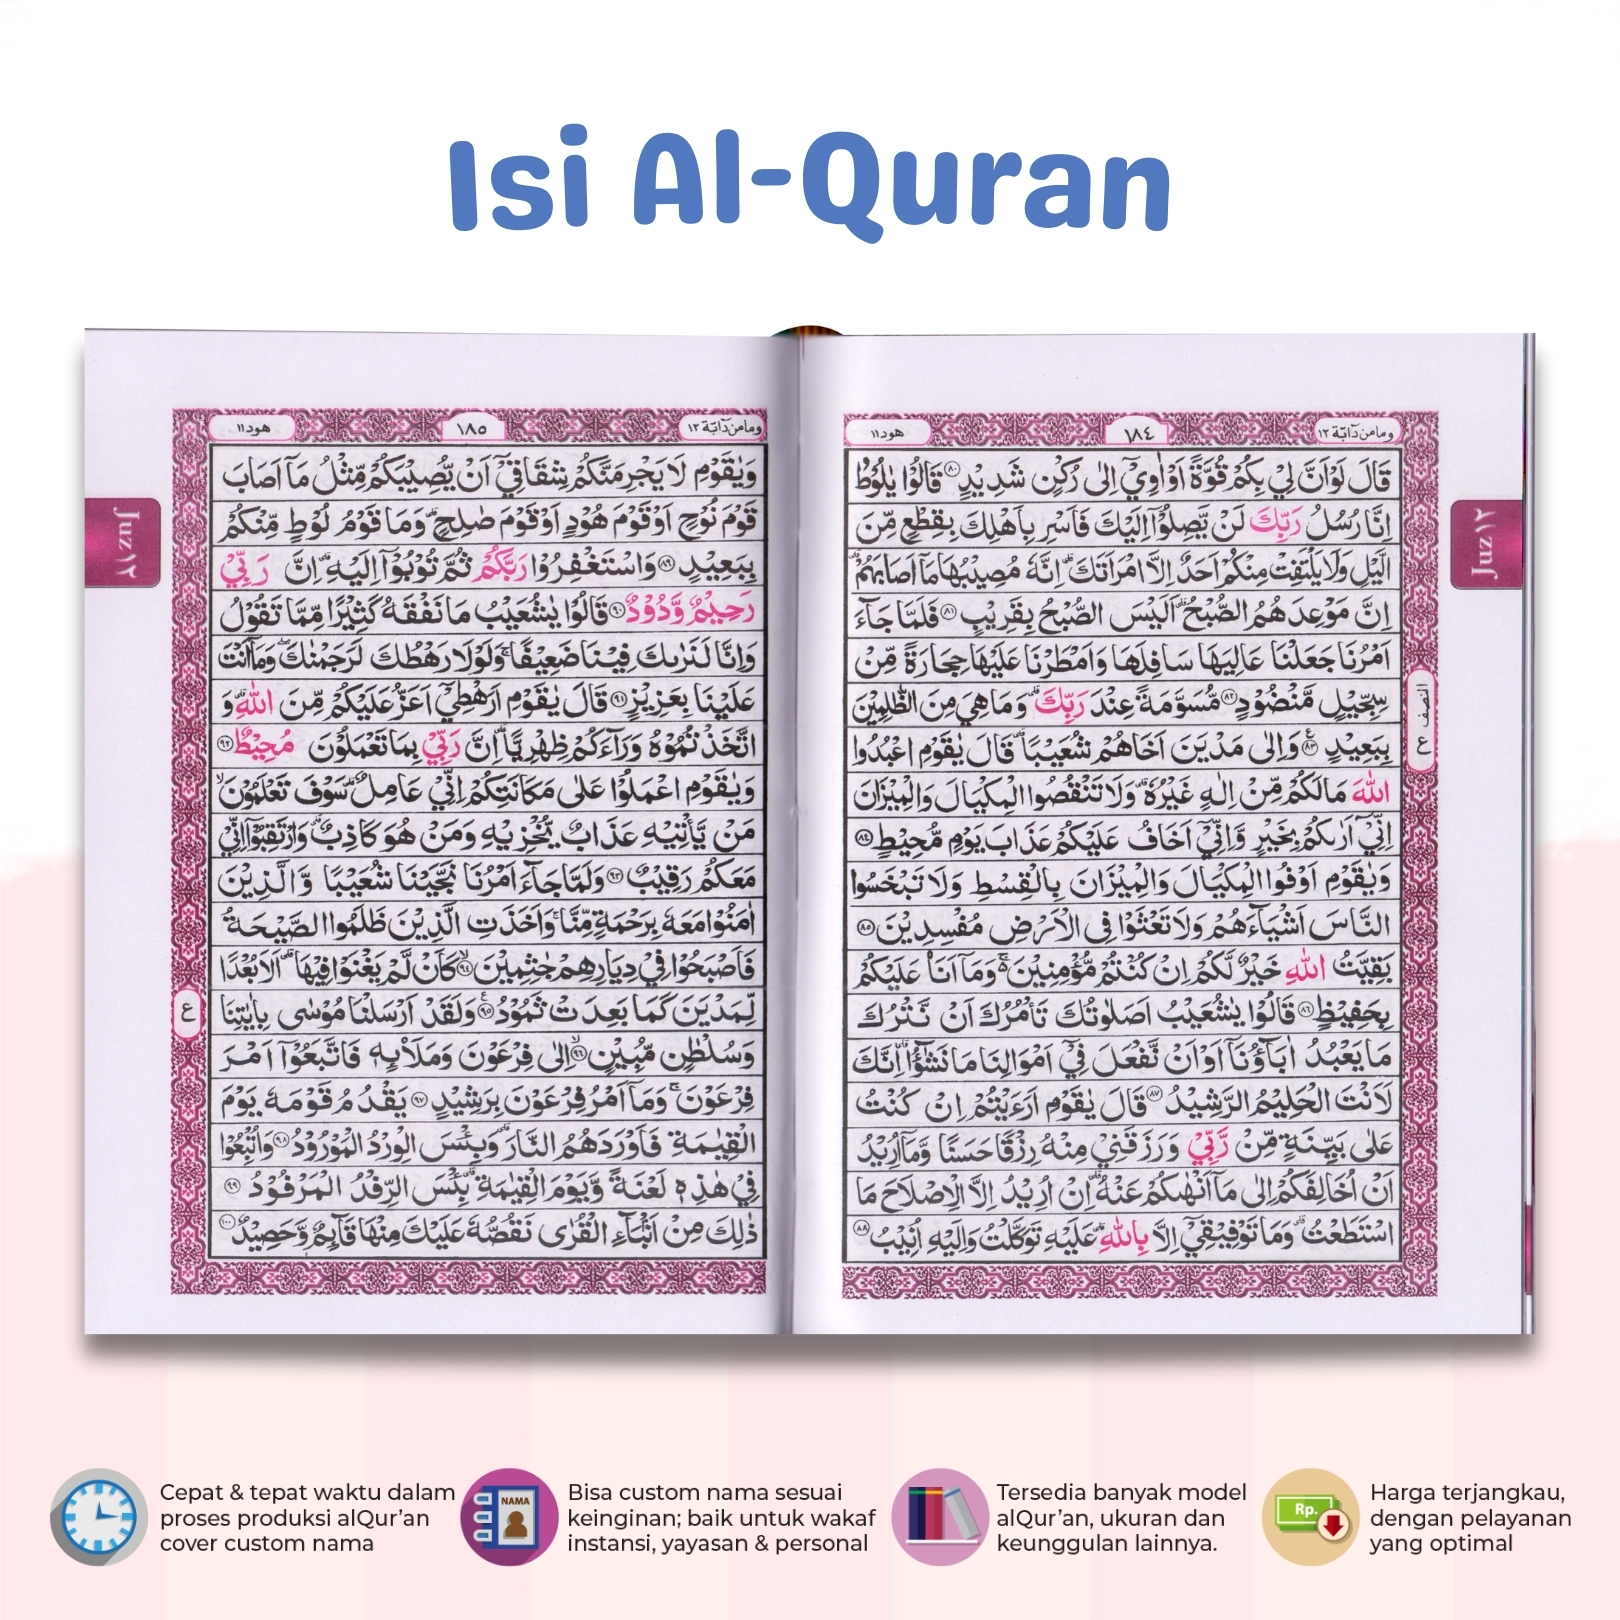 Isi Al-Quran
وما من دآبّة ١٢
١٨٤
هود ١١
قَالَ لَوْ اَنَّ لِيْ بِكُمْ قُوَّةً اَوْ اٰوِيْٓ اِلٰى رُكْنٍ شَدِيْدٍ ٨٠ قَالُوْا يٰلُوْطُ
اِنَّا رُسُلُ رَبِّكَ لَنْ يَّصِلُوْٓا اِلَيْكَ فَاَسْرِ بِاَهْلِكَ بِقِطْعٍ مِّنَ
الَّيْلِ وَلَا يَلْتَفِتْ مِنْكُمْ اَحَدٌ اِلَّا امْرَاَتَكَۗ اِنَّهٗ مُصِيْبُهَا مَآ اَصَابَهُمْۗ
اِنَّ مَوْعِدَهُمُ الصُّبْحُۗ اَلَيْسَ الصُّبْحُ بِقَرِيْبٍ ٨١ فَلَمَّا جَاۤءَ
اَمْرُنَا جَعَلْنَا عَالِيَهَا سَافِلَهَا وَاَمْطَرْنَا عَلَيْهَا حِجَارَةً مِّنْ
سِجِّيْلٍ مَّنْضُوْدٍ ٨٢ مُّسَوَّمَةً عِنْدَ رَبِّكَۗ وَمَا هِيَ مِنَ الظّٰلِمِيْنَ
بِبَعِيْدٍ ٨٣ وَاِلٰى مَدْيَنَ اَخَاهُمْ شُعَيْبًاۗ قَالَ يٰقَوْمِ اعْبُدُوا
اللّٰهَ مَا لَكُمْ مِّنْ اِلٰهٍ غَيْرُهٗۗ وَلَا تَنْقُصُوا الْمِكْيَالَ وَالْمِيْزَانَ
اِنِّيْٓ اَرٰىكُمْ بِخَيْرٍ وَّاِنِّيْٓ اَخَافُ عَلَيْكُمْ عَذَابَ يَوْمٍ مُّحِيْطٍ ٨٤
وَيٰقَوْمِ اَوْفُوا الْمِكْيَالَ وَالْمِيْزَانَ بِالْقِسْطِ وَلَا تَبْخَسُوا
النَّاسَ اَشْيَاۤءَهُمْ وَلَا تَعْثَوْا فِى الْاَرْضِ مُفْسِدِيْنَ ٨٥
بَقِيَّتُ اللّٰهِ خَيْرٌ لَّكُمْ اِنْ كُنْتُمْ مُّؤْمِنِيْنَ ەۚ وَمَآ اَنَا۠ عَلَيْكُمْ
بِحَفِيْظٍ ٨٦ قَالُوْا يٰشُعَيْبُ اَصَلٰوتُكَ تَأْمُرُكَ اَنْ نَّتْرُكَ
مَا يَعْبُدُ اٰبَاۤؤُنَآ اَوْ اَنْ نَّفْعَلَ فِيْٓ اَمْوَالِنَا مَا نَشٰۤؤُاۗ اِنَّكَ
لَاَنْتَ الْحَلِيْمُ الرَّشِيْدُ ٨٧ قَالَ يٰقَوْمِ اَرَءَيْتُمْ اِنْ كُنْتُ
عَلٰى بَيِّنَةٍ مِّنْ رَّبِّيْ وَرَزَقَنِيْ مِنْهُ رِزْقًا حَسَنًا وَّمَآ اُرِيْدُ
اَنْ اُخَالِفَكُمْ اِلٰى مَآ اَنْهٰىكُمْ عَنْهُۗ اِنْ اُرِيْدُ اِلَّا الْاِصْلَاحَ مَا
اسْتَطَعْتُۗ وَمَا تَوْفِيْقِيْٓ اِلَّا بِاللّٰهِۗ عَلَيْهِ تَوَكَّلْتُ وَاِلَيْهِ اُنِيْبُ ٨٨
النصف
ع
Juz ١٢
وما من دآبّة ١٢
١٨٥
هود ١١
وَيٰقَوْمِ لَا يَجْرِمَنَّكُمْ شِقَاقِيْٓ اَنْ يُّصِيْبَكُمْ مِّثْلُ مَآ اَصَابَ
قَوْمَ نُوْحٍ اَوْ قَوْمَ هُوْدٍ اَوْ قَوْمَ صٰلِحٍۗ وَمَا قَوْمُ لُوْطٍ مِّنْكُمْ
بِبَعِيْدٍ ٨٩ وَاسْتَغْفِرُوْا رَبَّكُمْ ثُمَّ تُوْبُوْٓا اِلَيْهِۗ اِنَّ رَبِّيْ
رَحِيْمٌ وَّدُوْدٌ ٩٠ قَالُوْا يٰشُعَيْبُ مَا نَفْقَهُ كَثِيْرًا مِّمَّا تَقُوْلُ
وَاِنَّا لَنَرٰىكَ فِيْنَا ضَعِيْفًاۚ وَلَوْلَا رَهْطُكَ لَرَجَمْنٰكَۖ وَمَآ اَنْتَ
عَلَيْنَا بِعَزِيْزٍ ٩١ قَالَ يٰقَوْمِ اَرَهْطِيْٓ اَعَزُّ عَلَيْكُمْ مِّنَ اللّٰهِۗ وَ
اتَّخَذْتُمُوْهُ وَرَاۤءَكُمْ ظِهْرِيًّاۗ اِنَّ رَبِّيْ بِمَا تَعْمَلُوْنَ مُحِيْطٌ ٩٢
وَيٰقَوْمِ اعْمَلُوْا عَلٰى مَكَانَتِكُمْ اِنِّيْ عَامِلٌۗ سَوْفَ تَعْلَمُوْنَۙ
مَنْ يَّأْتِيْهِ عَذَابٌ يُّخْزِيْهِ وَمَنْ هُوَ كَاذِبٌۗ وَارْتَقِبُوْٓا اِنِّيْ
مَعَكُمْ رَقِيْبٌ ٩٣ وَلَمَّا جَاۤءَ اَمْرُنَا نَجَّيْنَا شُعَيْبًا وَّالَّذِيْنَ
اٰمَنُوْا مَعَهٗ بِرَحْمَةٍ مِّنَّاۚ وَاَخَذَتِ الَّذِيْنَ ظَلَمُوا الصَّيْحَةُ
فَاَصْبَحُوْا فِيْ دِيَارِهِمْ جٰثِمِيْنَۙ ٩٤ كَاَنْ لَّمْ يَغْنَوْا فِيْهَاۗ اَلَا بُعْدًا
لِّمَدْيَنَ كَمَا بَعِدَتْ ثَمُوْدُ ٩٥ وَلَقَدْ اَرْسَلْنَا مُوْسٰى بِاٰيٰتِنَا
وَسُلْطٰنٍ مُّبِيْنٍۙ ٩٦ اِلٰى فِرْعَوْنَ وَمَلَا۟ىِٕهٖ فَاتَّبَعُوْٓا اَمْرَ
فِرْعَوْنَۚ وَمَآ اَمْرُ فِرْعَوْنَ بِرَشِيْدٍ ٩٧ يَقْدُمُ قَوْمَهٗ يَوْمَ
الْقِيٰمَةِ فَاَوْرَدَهُمُ النَّارَۗ وَبِئْسَ الْوِرْدُ الْمَوْرُوْدُ ٩٨ وَاُتْبِعُوْا
فِيْ هٰذِهٖ لَعْنَةً وَّيَوْمَ الْقِيٰمَةِۗ بِئْسَ الرِّفْدُ الْمَرْفُوْدُ ٩٩
ذٰلِكَ مِنْ اَنْۢبَاۤءِ الْقُرٰى نَقُصُّهٗ عَلَيْكَ مِنْهَا قَاۤىِٕمٌ وَّحَصِيْدٌ ١٠٠
ع
Juz ١٢
Cepat & tepat waktu dalam
proses produksi alQur'an
cover custom nama
NAMA
Bisa custom nama sesuai
keinginan; baik untuk wakaf
instansi, yayasan & personal
Tersedia banyak model
alQur'an, ukuran dan
keunggulan lainnya.
Rp.
Harga terjangkau,
dengan pelayanan
yang optimal